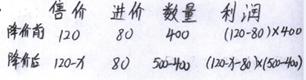 售价 进价 数量 利润
降价前 120 80 400 (120-80)×400
降价后 120-x 80 500-400 (120-x-80)×(500-400)